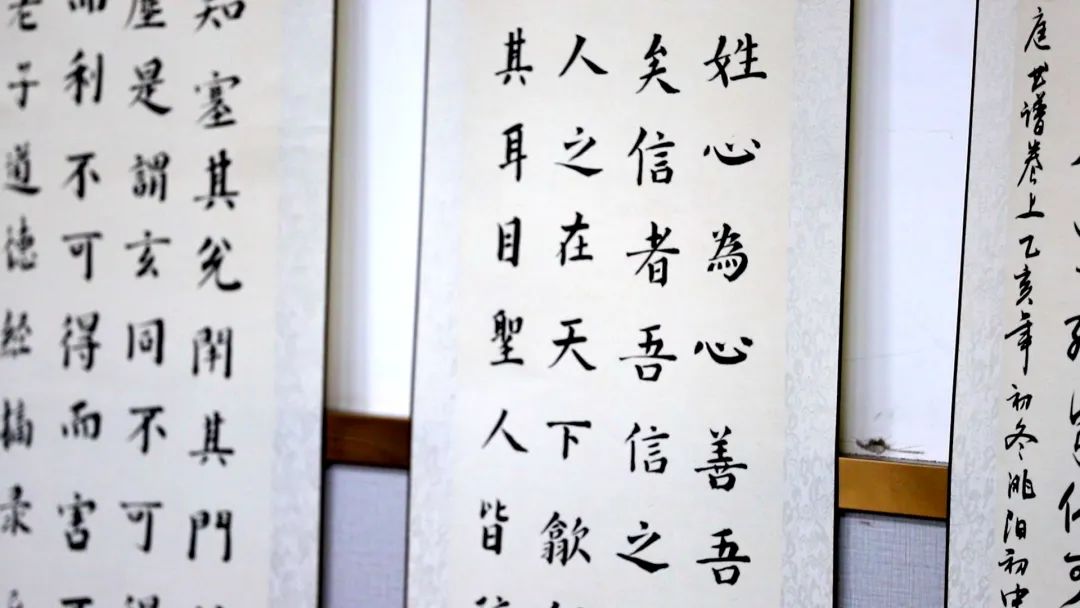 庭书谱卷上乙亥年初冬洮泊初中
姓心為心善吾
矣信者吾信之
人之在天下歙
其耳目聖人皆
知塞其兌閉其門
塵是謂玄同不可得
而利不可得而害不
老子道德经摘录